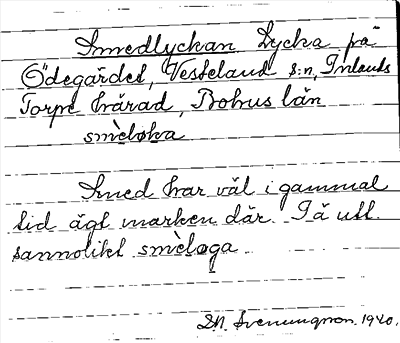 Smedlyckan Lycka på
Ödegärdet, Vesterland s:n, Inlands
Torpe härad, Bohus län
smèløka
Smed har väl i gammal
tid ägt marken där. Få utt.
sannolikt smèløga
D.N. Svenungson. 1920.